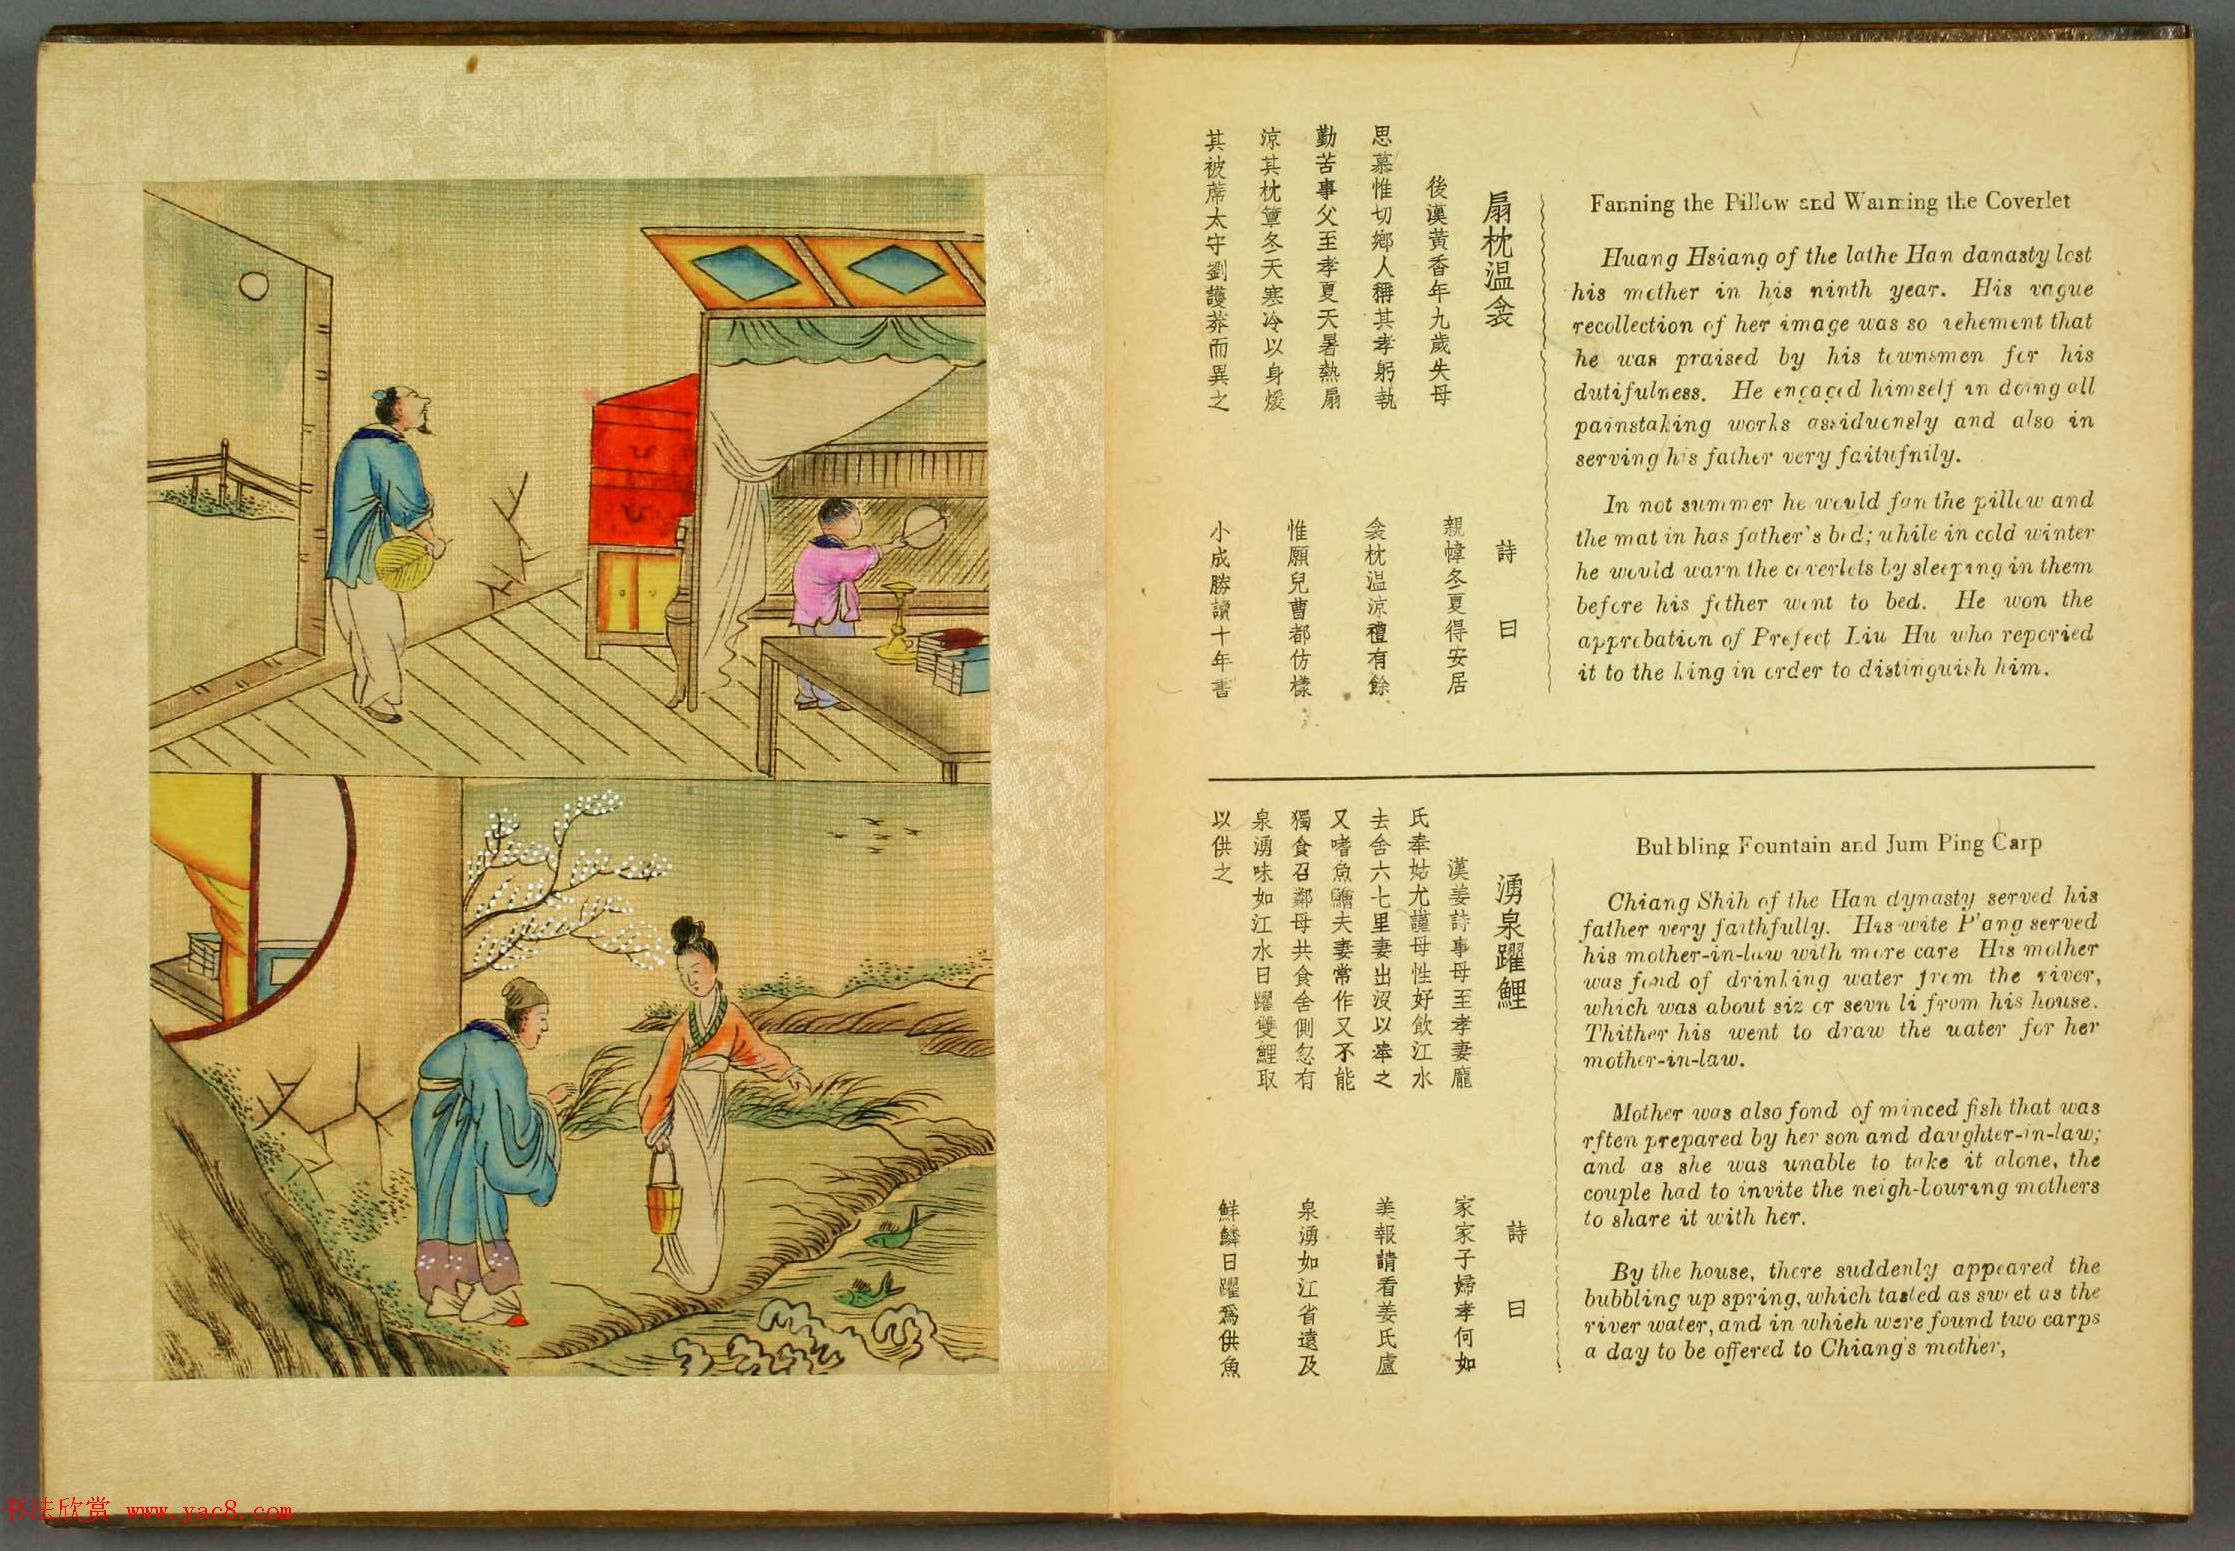 Fanning the Pillow and Warming the Coverlet
Huang Hsiang of the lathe Han danasty lost
his mother in his ninth year. His vague
recollection of her image was so vehement that
he was praised by his townsmen for his
dutifulness. He engaged himself in doing all
painstaking works assiduonsly and also in
serving his father very faitufnily.
In not summer he would fan the pillow and
the mat in has father's bed; while in cold winter
he would warn the coverlets by sleeping in them
before his father went to bed. He won the
apprebation of Prefect Liu Hu who reporied
it to the king in order to distinguish him.
扇枕温衾
後漢黃香年九歲失母
思慕惟切鄉人稱其孝躬執
勤苦事父至孝夏天暑熱扇
涼其枕簟冬天寒冷以身煖
其被蓆太守劉護莽而異之
詩曰
親幃冬夏得安居
衾枕温涼禮有餘
惟願兒曹都仿樣
小成勝讀十年書
Bubbling Fountain and Jum Ping Carp
Chiang Shih of the Han dynasty served his
father very faithfully. His wite P'ang served
his mother-in-law with more care His mother
was fond of drinking water from the river,
which was about siz or sevn li from his house.
Thither his went to draw the water for her
mother-in-law.
Mother was also fond of minced fish that was
rften prepared by her son and daughter-in-law;
and as she was unable to take it alone, the
couple had to invite the neigh-bouring mothers
to share it with her.
By the house, there suddenly appeared the
bubbling up spring, which tasted as sweet as the
river water, and in whieh were found two carps
a day to be offered to Chiang's mother,
湧泉躍鯉
漢姜詩事母至孝妻龐
氏奉姑尤謹母性好飲江水
去舍六七里妻出沒以奉之
又嗜魚鱠夫妻常作又不能
獨食召鄰母共食舍側忽有
泉湧味如江水日躍雙鯉取
以供之
詩曰
家家子婦孝何如
美報請看姜氏盧
泉湧如江省遠及
鮮鱗日躍爲供魚
书法欣赏 www.yac8.com